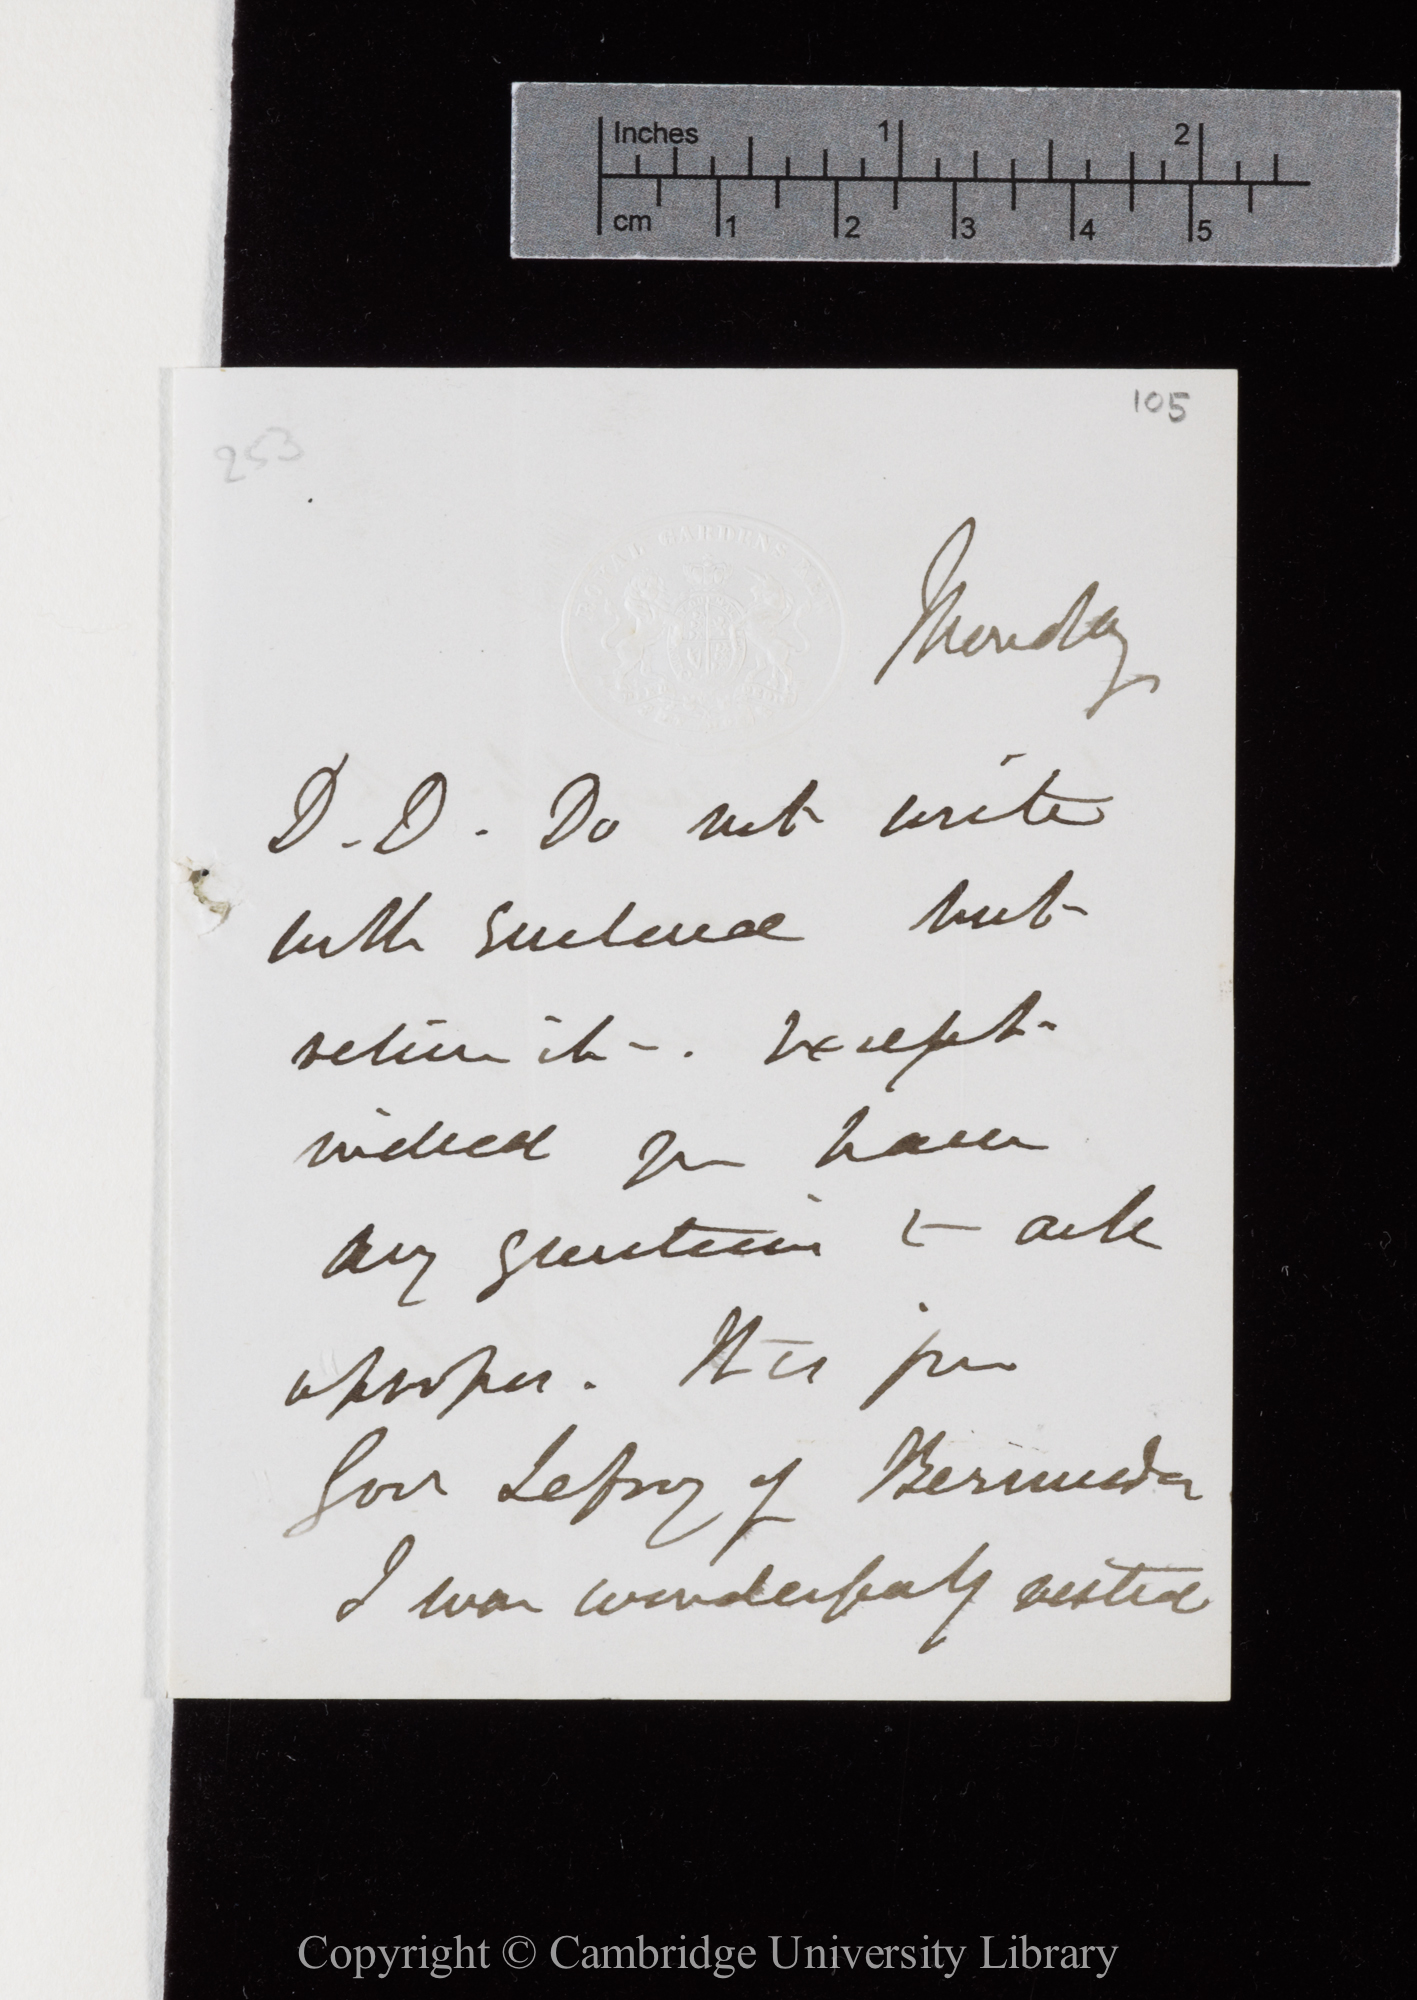 Inches 1 2
cm 1 2 3 4 5
105
253
ROYAL GARDENS KEW
Monday
D. D. Do not write
with Enclosed but
return it—. Except
indeed you have
any questions to ask
apropos. It is from
Govr Lefroy of Bermuda
I was wonderfully rested
Copyright © Cambridge University Library